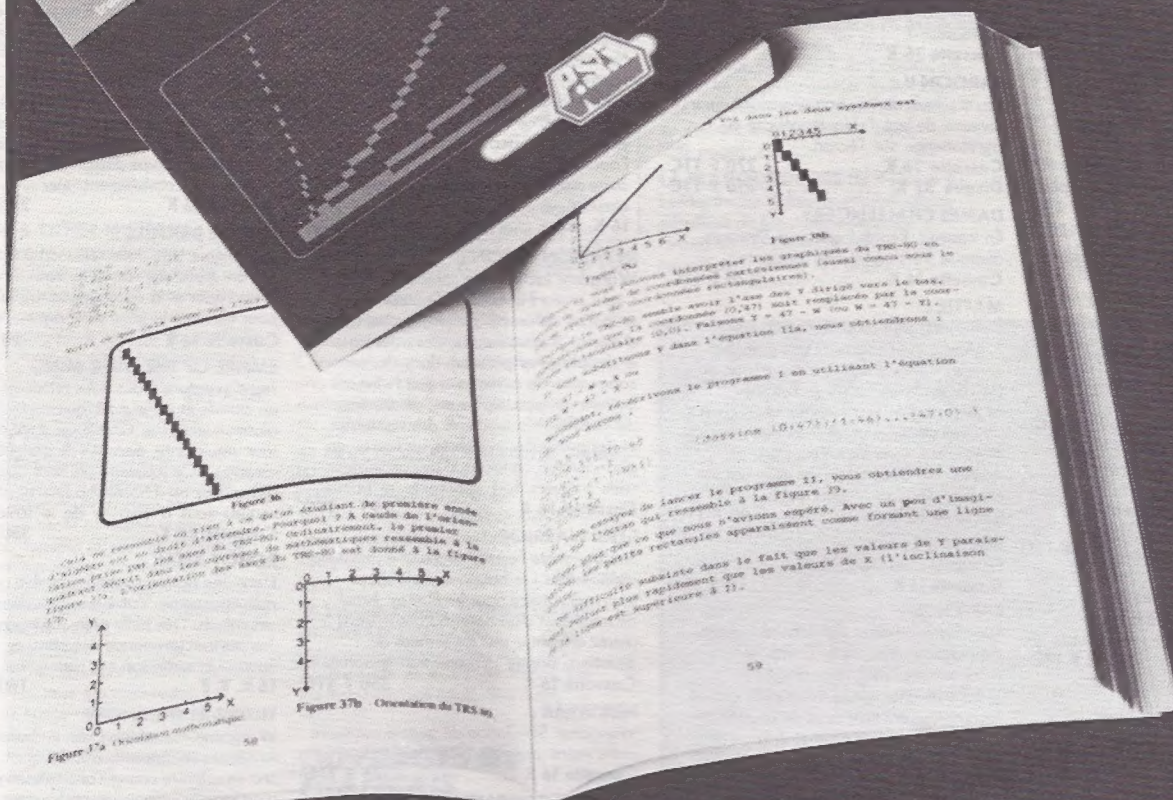 P.S.I
Figure 36
Cela ne ressemble en rien à ce qu'un étudiant de première année
d'algèbre est en droit d'attendre. Pourquoi ? A cause de l'orien-
tation prise par les axes du TRS-80. Ordinairement, le premier
quadrant décrit dans les ouvrages de mathématiques ressemble à la
figure 37a. L'orientation des axes du TRS-80 est donné à la figure
37b.
Y
4
3
2
1
0
0 1 2 3 4 5 X
Figure 37a Orientation mathématique
0 1 2 3 4 5 X
0
1
2
3
4
Y
Figure 37b Orientation du TRS 80
58
dans les deux systèmes est
0 1 2 3 4 5 6 X
012345 X
0
1
2
3
4
5
Y
Figure 38b
nous pouvons interpréter les graphiques du TRS-80 en
de coordonnées cartésiennes (aussi connu sous le
de coordonnées rectangulaires).
le TRS-80 semble avoir l'axe des Y dirigé vers le bas,
que la coordonnée (0,47) soit remplacée par la coor-
rectangulaire (0,0). Faisons Y = 47 - W (ou W = 47 - Y).
substituons Y dans l'équation 11a, nous obtiendrons :
47 - W = X ou
W = 47 - X
ré-écrivons le programme 1 en utilisant l'équation
nous aurons :
(dessine (0,47);(1,46)...(47,0) )
essayez de lancer le programme 11, vous obtiendrez une
sur l'écran qui ressemble à la figure 39.
plus que ce que nous n'avions espéré. Avec un peu d'imagi-
les petits rectangles apparaissent comme formant une ligne
difficulté subsiste dans le fait que les valeurs de Y parais-
plus rapidement que les valeurs de X (l'inclinaison
de la ligne est supérieure à 1).
59